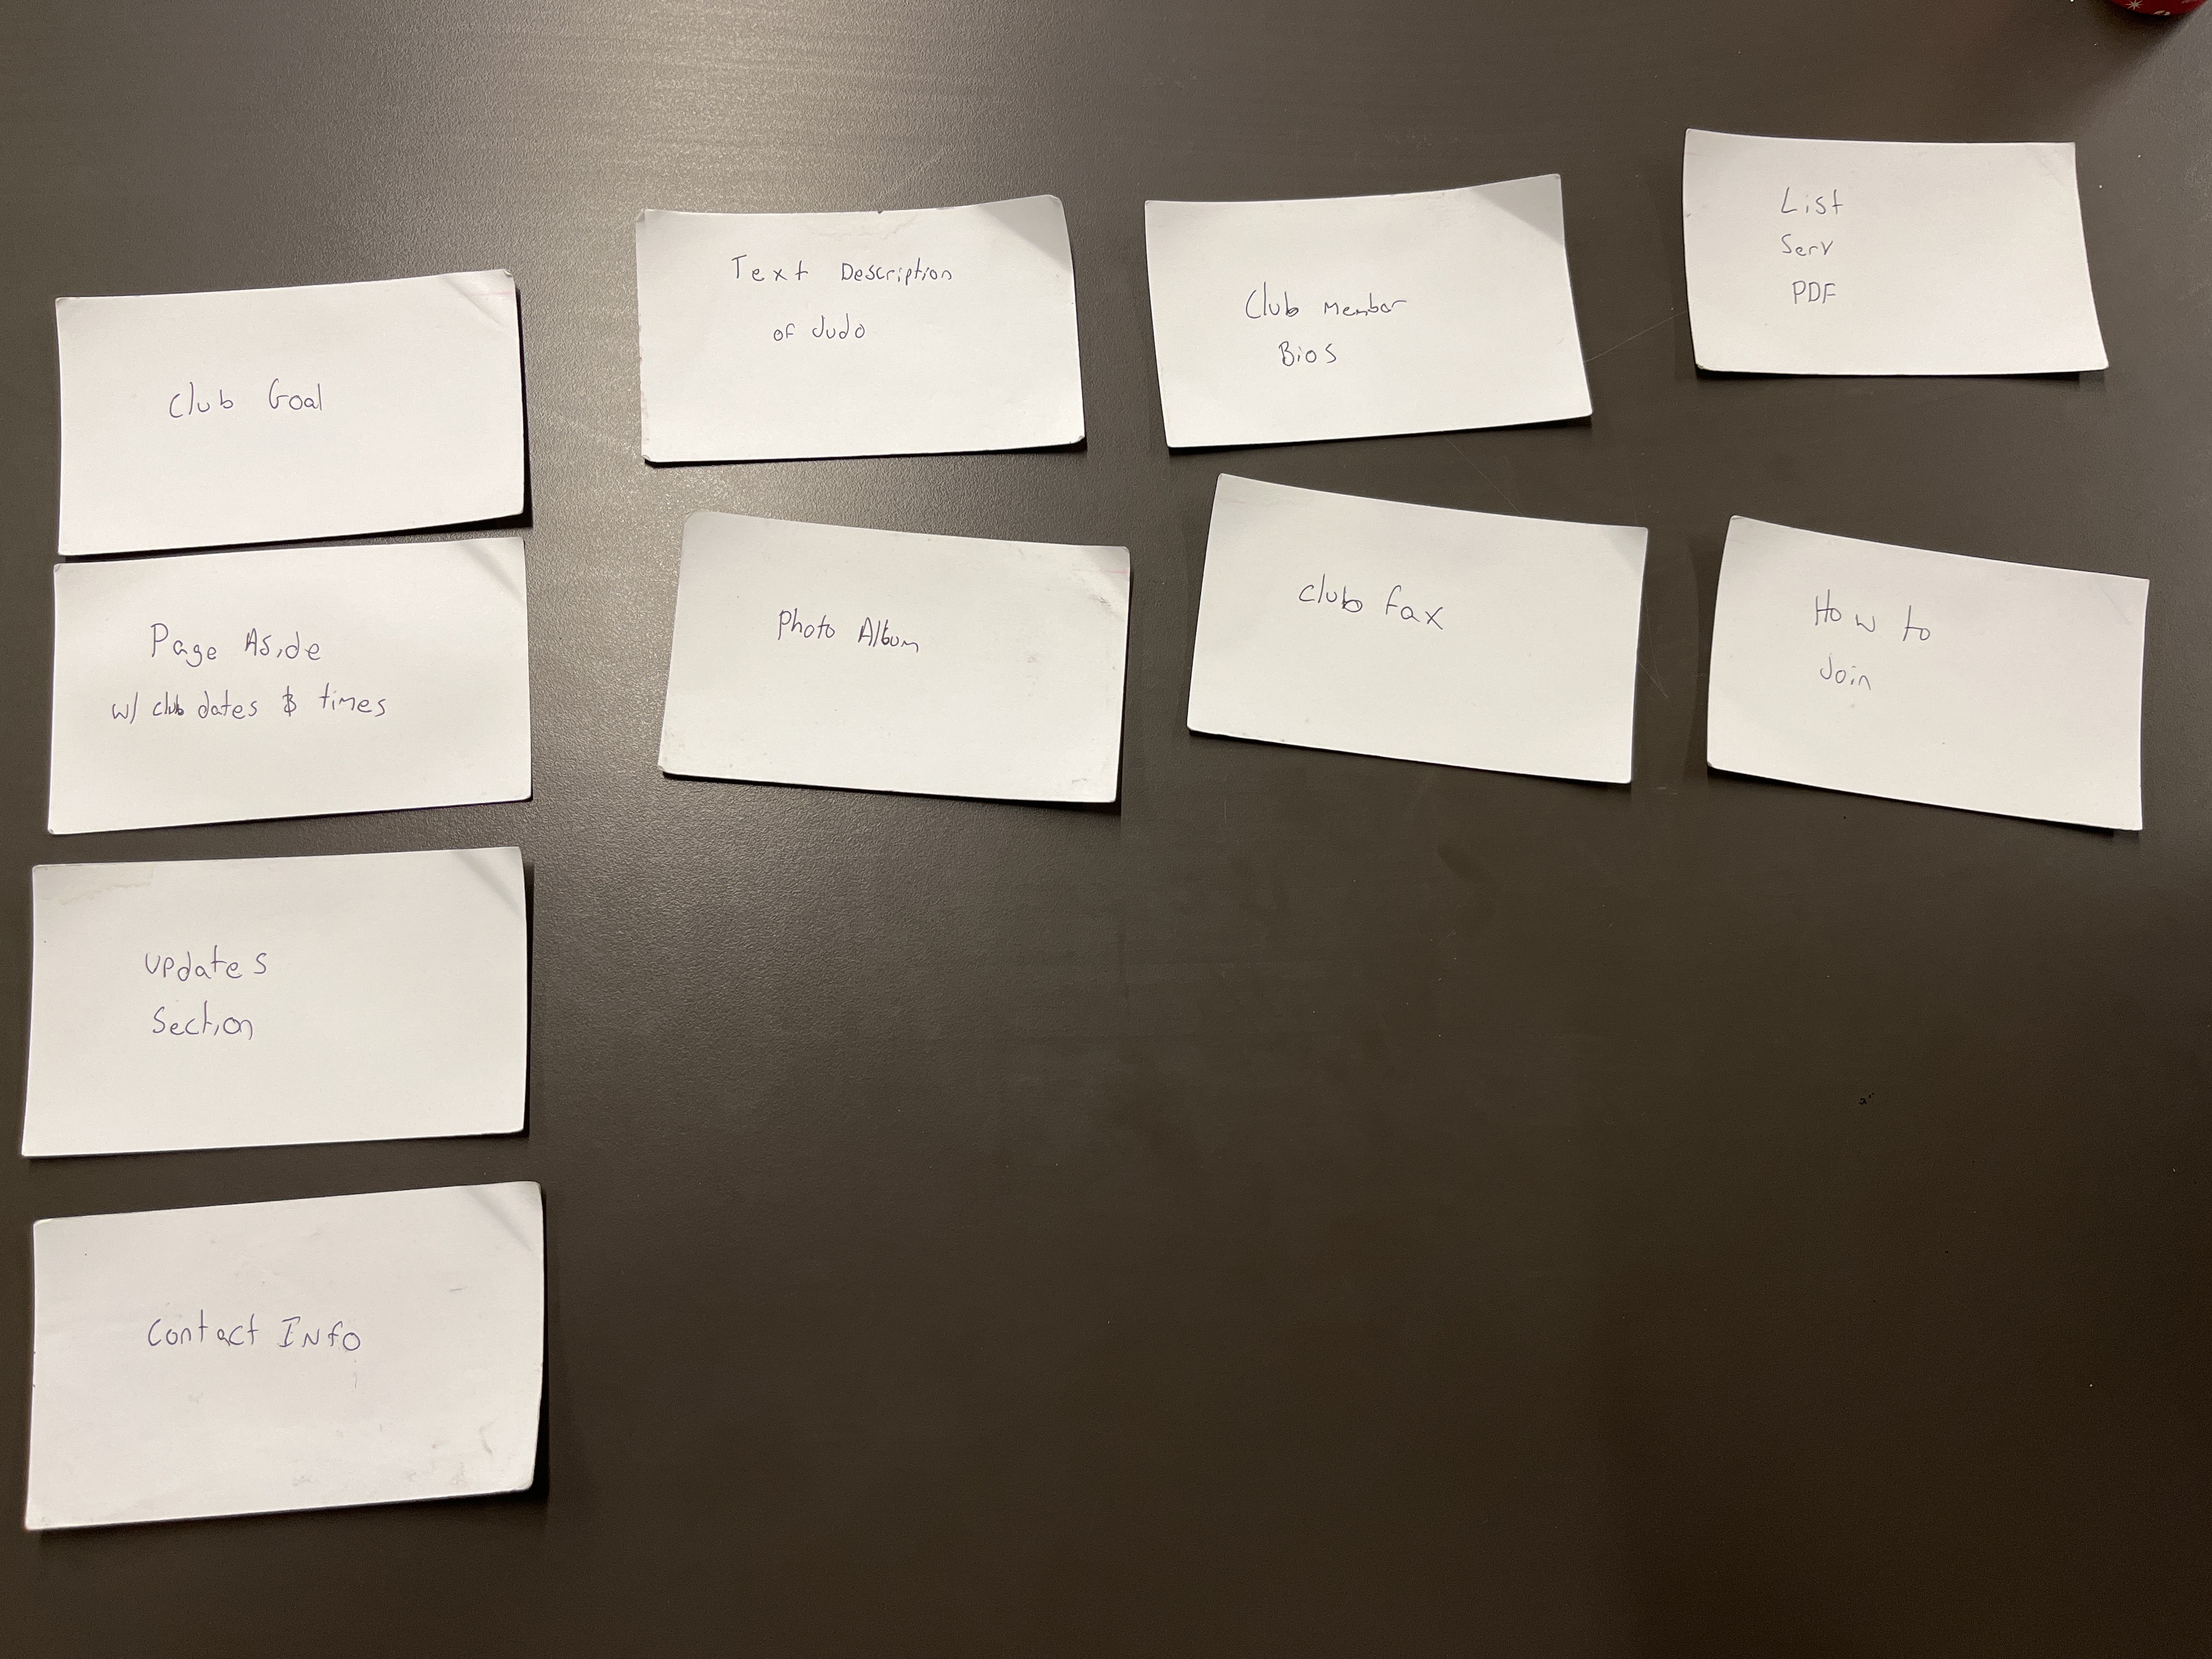 Club Goal
Page Aside
w/ club dates & times
Updates
Section
Contact Info
Text Description
of Judo
Photo Album
Club Member
Bios
Club fax
List
Serv
PDF
How to
Join